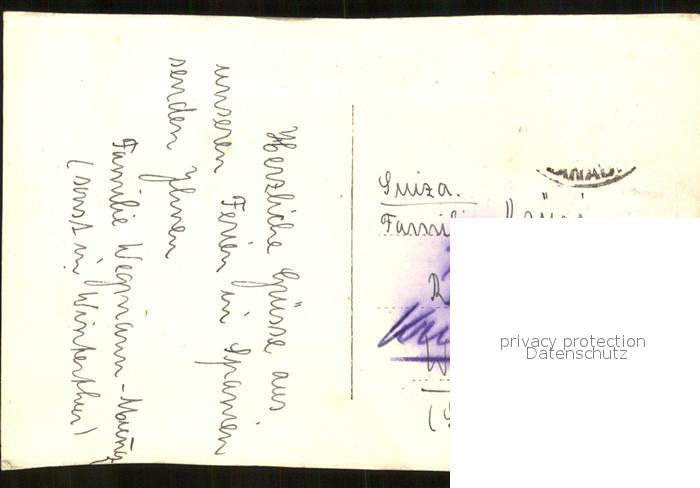 Herzliche Grüsse aus
unseren Ferien in Spanien
senden Ihnen
Familie Wegmann-
(sonst in Winterthur)
Suiza.
Familie
privacy protection
Datenschutz